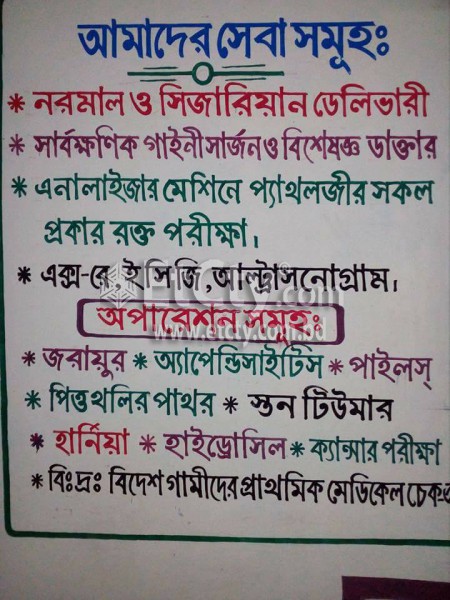 আমাদের সেবা সমূহঃ
* নরমাল ও সিজারিয়ান ডেলিভারী
* সার্বক্ষণিক গাইনী সার্জন ও বিশেষজ্ঞ ডাক্তার
* এনালাইজার মেশিনে প্যাথলজীর সকল
প্রকার রক্ত পরীক্ষা।
* এক্স-রে, ই সিজি, আল্ট্রাসনোগ্রাম।
EtCty.com
অপারেশন সমূহঃ
www.etcty.com.bd
* জরায়ুর * অ্যাপেন্ডিসাইটিস * পাইলস্
* পিত্তথলির পাথর * স্তন টিউমার
* হার্নিয়া * হাইড্রোসিল * ক্যান্সার পরীক্ষা
* বিঃদ্রঃ বিদেশ গামীদের প্রাথমিক মেডিকেল